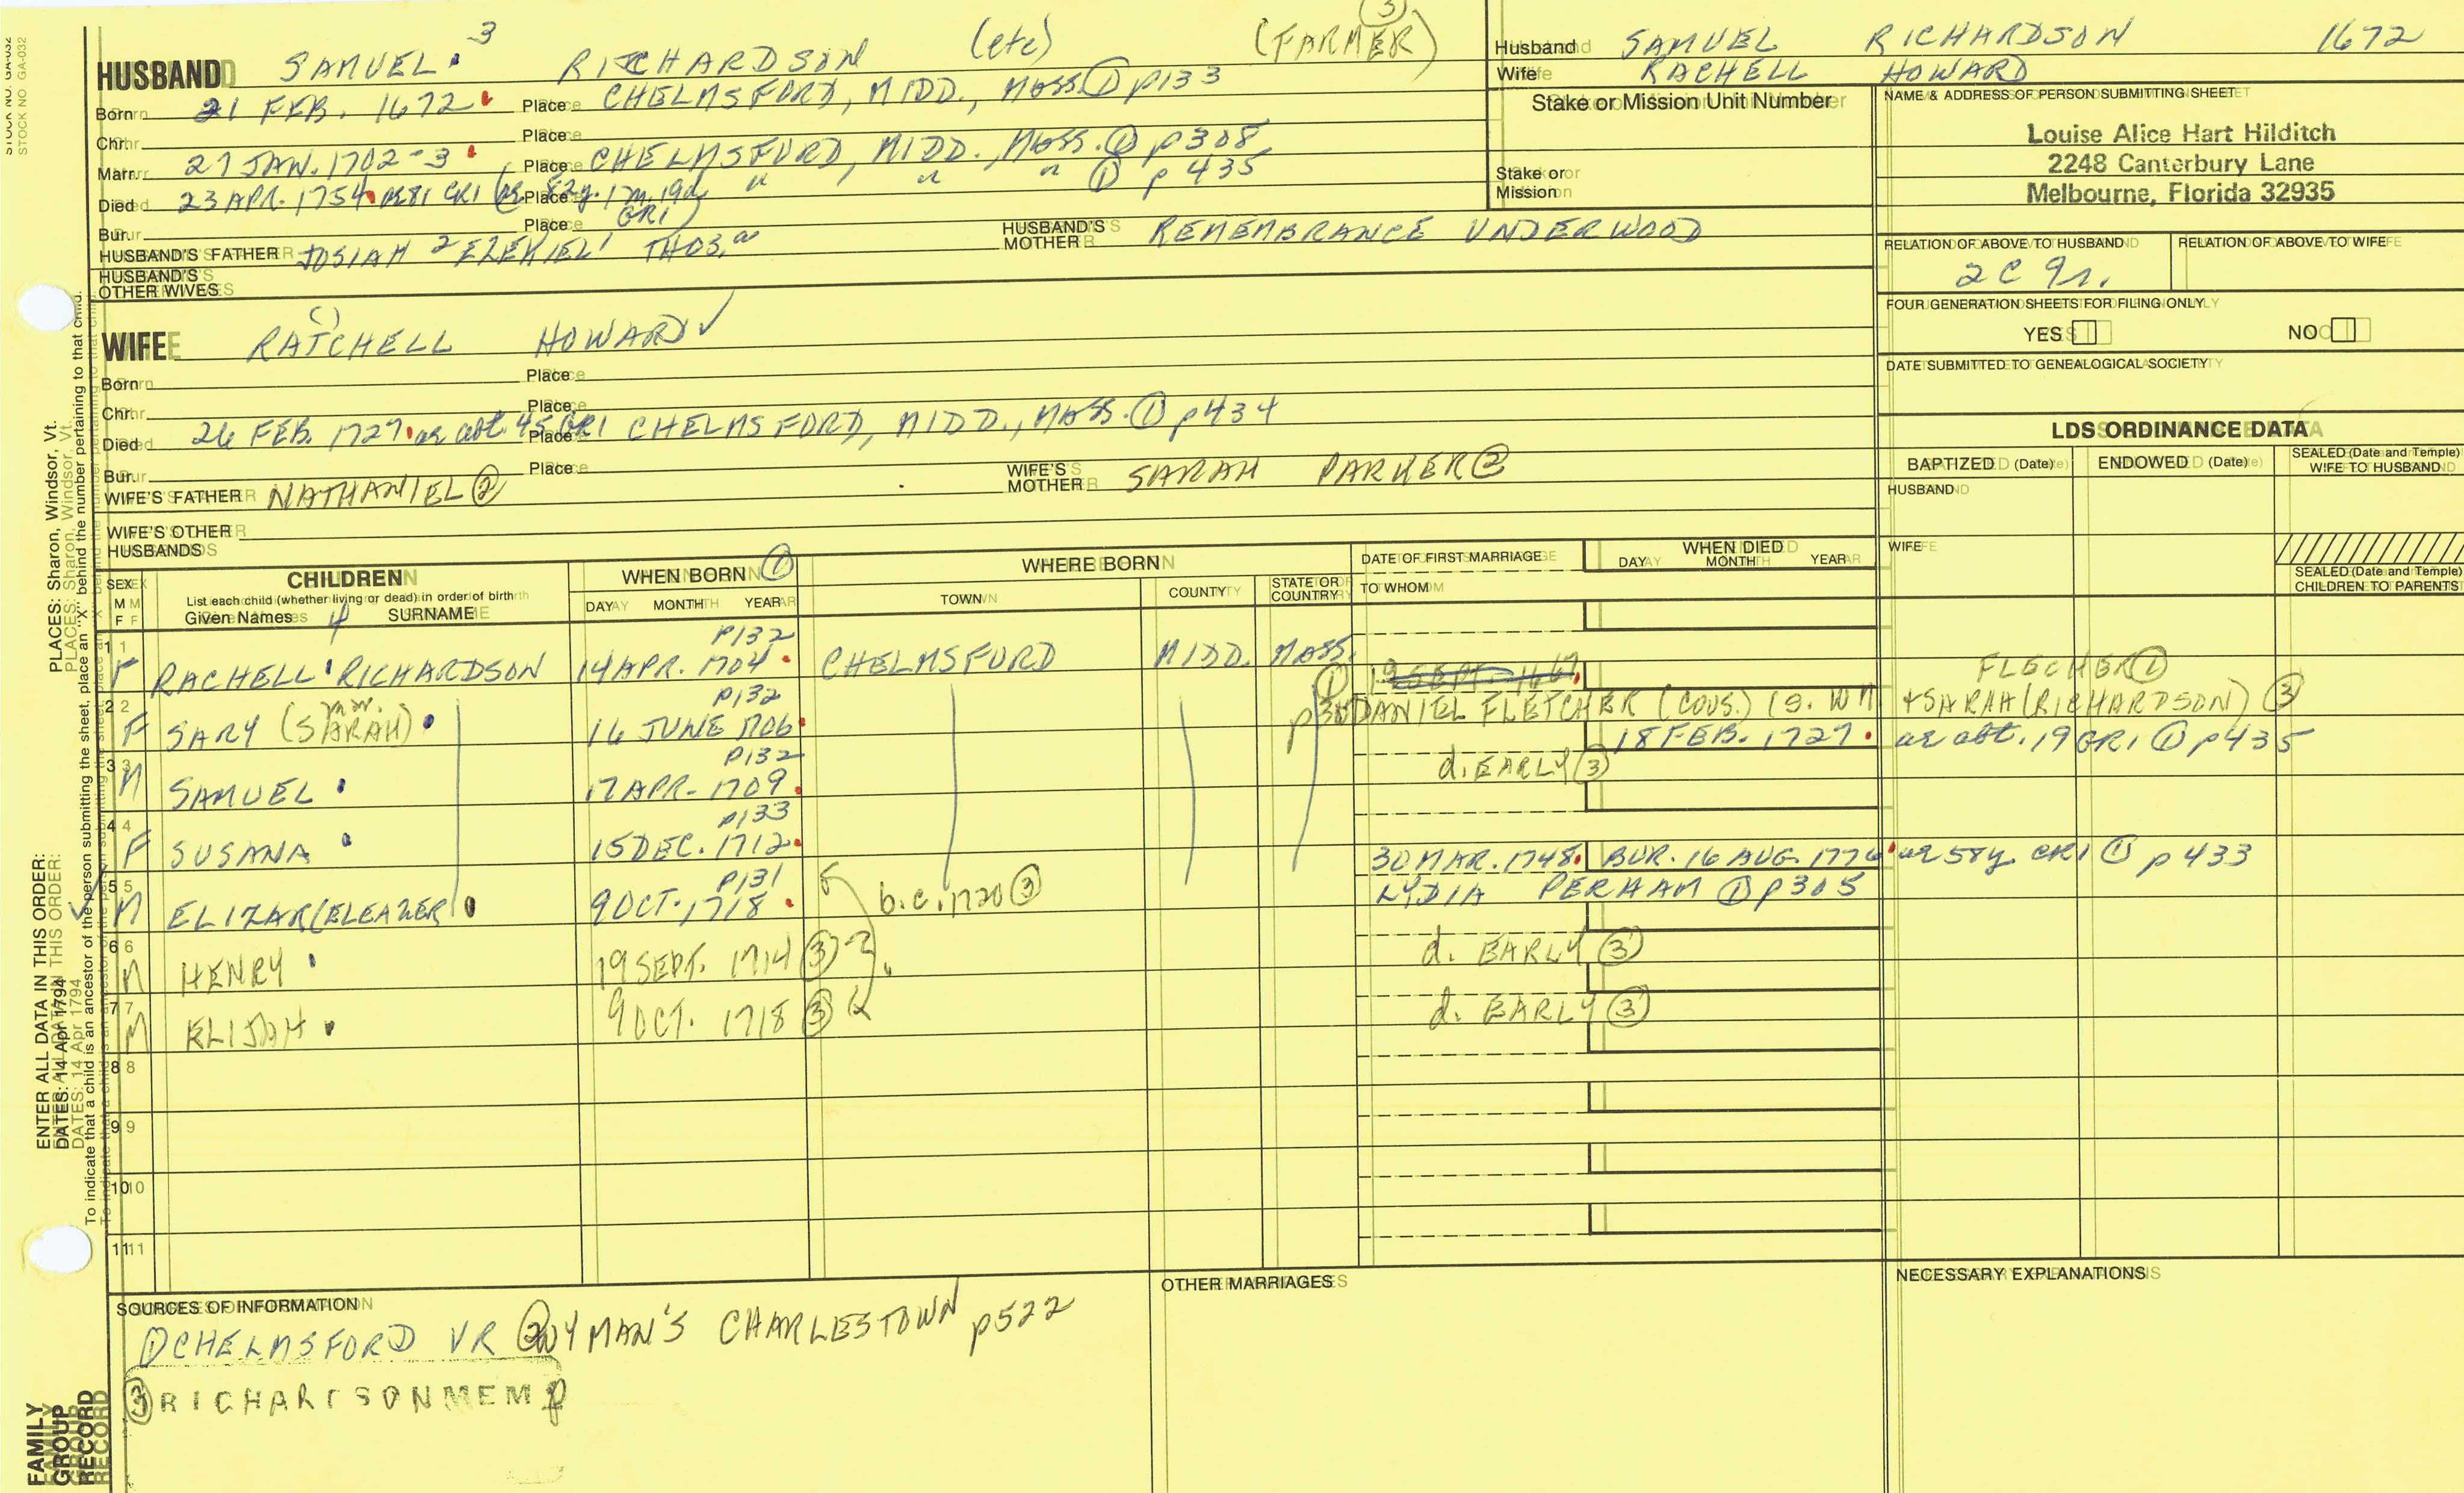 HUSBAND SAMUEL 3 RICHARDSON (etc) (FARMER) (3)
Born 21 FEB. 1672 Place CHELMSFORD, MIDD., MASS. (1) p133
Chr. Place
Marr. 27 JAN. 1702-3 Place CHELMSFORD, MIDD., MASS. (1) p308
Died 23 APR. 1754 GR1 (ae 82y. 1m. 19d. GR1) Place " " " (1) p 435
Bur. Place
HUSBAND'S FATHER JOSIAH 2 EZEKIEL 1 THOS. a HUSBAND'S MOTHER REMEMBRANCE UNDERWOOD
HUSBAND'S OTHER WIVES
WIFE RATCHELL HOWARD ✓
Born Place
Chr. Place
Died 26 FEB. 1727 ae abt 45 GR1 Place CHELMSFORD, MIDD., MASS. (1) p434
Bur. Place
WIFE'S FATHER NATHANIEL (2) WIFE'S MOTHER SARAH PARKER (2)
WIFE'S OTHER HUSBANDS
Husband SAMUEL RICHARDSON 1672
Wife RACHELL HOWARD
Stake or Mission Unit Number
Stake or Mission
NAME & ADDRESS OF PERSON SUBMITTING SHEET
Louise Alice Hart Hilditch
2248 Canterbury Lane
Melbourne, Florida 32935
RELATION OF ABOVE TO HUSBAND RELATION OF ABOVE TO WIFE
2C 9r.
FOUR GENERATION SHEETS FOR FILING ONLY
YES NO
DATE SUBMITTED TO GENEALOGICAL SOCIETY
LDS ORDINANCE DATA
BAPTIZED (Date) ENDOWED (Date) SEALED (Date and Temple) WIFE TO HUSBAND
HUSBAND
WIFE
SEALED (Date and Temple) CHILDREN TO PARENTS
SEX M F CHILDREN WHEN BORN (1) WHERE BORN DATE OF FIRST MARRIAGE WHEN DIED
List each child (whether living or dead) in order of birth
Given Names 4 SURNAME DAY MONTH YEAR TOWN COUNTY STATE OR COUNTRY TO WHOM DAY MONTH YEAR
1 F RACHELL RICHARDSON p132 14 APR. 1704 CHELMSFORD MIDD. MASS.
2 F SARY (SARAH) p132 16 JUNE 1706 (1) DANIEL FLETCHER (COUS.) (S. WM + SARAH (RICHARDSON) (3) FLECHER (1)
3 M SAMUEL p132 17 APR. 1709 d. EARLY (3) 18 FEB. 1727 ae abt. 19 GR1 (1) p435
4 F SUSANA p133 15 DEC. 1712
5 M ELIZAR (ELEAZER) p131 9 OCT. 1718 b.c. 1720 (3) 30 MAR. 1748 BUR. 16 AUG. 1776 ae 58y. CR1 (1) p433
LYDIA PERHAM (1) p305
6 M HENRY 19 SEPT. 1714 (3) d. EARLY (3)
7 M ELIJAH 9 OCT. 1718 (3) d. EARLY (3)
8
9
10
11
SOURCES OF INFORMATION OTHER MARRIAGES NECESSARY EXPLANATIONS
(1) CHELMSFORD VR (2) WYMAN'S CHARLESTOWN p522
(3) RICHARDSON MEM p
STOCK NO. GA-032
PLACES: Sharon, Windsor, Vt.
ENTER ALL DATA IN THIS ORDER:
DATES: 14 Apr 1794
To indicate that a child is an ancestor of the person submitting the sheet, place an "X" behind the number pertaining to that child.
FAMILY GROUP RECORD